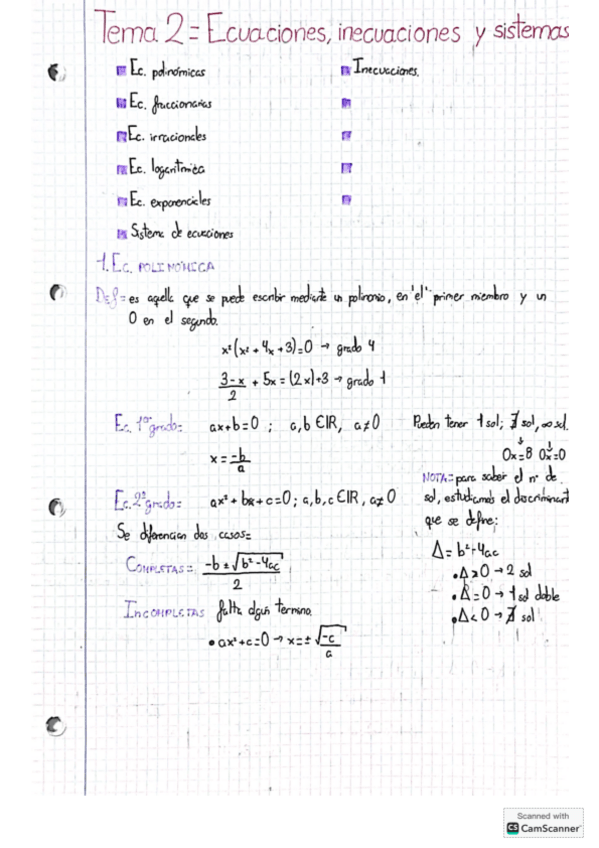 Tema 2 = Ecuaciones, inecuaciones y sistemas
Ec. polinómicas
Inecuaciones.
Ec. fraccionarias
Ec. irracionales
Ec. logarítmica
Ec. exponenciales
Sistema de ecuaciones
1. Ec. POLINÓMICA
Def = es aquella que se puede escribir mediante un polinomio, en el primer miembro y un
0 en el segundo.
x²(x² + 4x + 3) = 0 → grado 4
3-x/2 + 5x = (2x)+3 → grado 1
Ec. 1er grado = ax+b=0 ; a,b ∈ IR, a≠0
Pueden tener 1 sol; ∄ sol, ∞ sol.
0x=8 0x=0
x = -b/a
NOTA = para saber el nº de
sol, estudiamos el discriminant
que se define:
Ec. 2º grado = ax² + bx + c = 0 ; a,b,c ∈ IR, a≠0
Se diferencian dos casos =
Δ = b²-4ac
• Δ > 0 → 2 sol
• Δ = 0 → 1 sol doble
• Δ < 0 → ∄ sol
COMPLETAS = -b ± √b²-4ac / 2
INCOMPLETAS falta algún termino.
• ax² + c = 0 → x = ± √-c/a
Scanned with
CS CamScanner